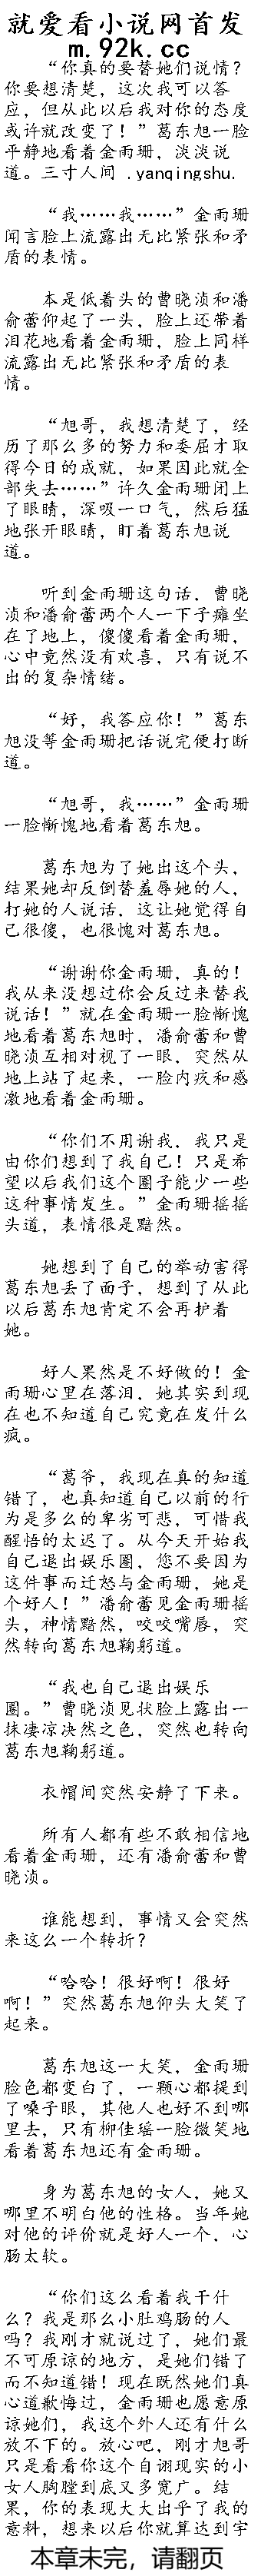 就爱看小说网首发
m.92k.cc
“你真的要替她们说情？
你要想清楚，这次我可以答
应，但从此以后我对你的态度
或许就改变了！”葛东旭一脸
平静地看着金雨珊，淡淡说
道。三寸人间 .yanqingshu.
“我……我……”金雨珊
闻言脸上流露出无比紧张和矛
盾的表情。
本是低着头的曹晓浈和潘
俞蕾仰起了一头，脸上还带着
泪花地看着金雨珊，脸上同样
流露出无比紧张和矛盾的表
情。
“旭哥，我想清楚了，经
历了那么多的努力和委屈才取
得今日的成就，如果因此就全
部失去……”许久金雨珊闭上
了眼睛，深吸一口气，然后猛
地张开眼睛，盯着葛东旭说
道。
听到金雨珊这句话，曹晓
浈和潘俞蕾两个人一下子瘫坐
在了地上，傻傻看着金雨珊，
心中竟然没有欢喜，只有说不
出的复杂情绪。
“好，我答应你！”葛东
旭没等金雨珊把话说完便打断
道。
“旭哥，我……”金雨珊
一脸惭愧地看着葛东旭。
葛东旭为了她出这个头，
结果她却反倒替羞辱她的人，
打她的人说话，这让她觉得自
己很傻，也很愧对葛东旭。
“谢谢你金雨珊，真的！
我从来没想过你会反过来替我
说话！”就在金雨珊一脸惭愧
地看着葛东旭时，潘俞蕾和曹
晓浈互相对视了一眼，突然从
地上站了起来，一脸内疚和感
激地看着金雨珊。
“你们不用谢我，我只是
由你们想到了我自己！只是希
望以后我们这个圈子能少一些
这种事情发生。”金雨珊摇摇
头道，表情很是黯然。
她想到了自己的举动害得
葛东旭丢了面子，想到了从此
以后葛东旭肯定不会再护着
她。
好人果然是不好做的！金
雨珊心里在落泪，她其实到现
在也不知道自己究竟在发什么
疯。
“葛爷，我现在真的知道
错了，也真知道自己以前的行
为是多么的卑劣可悲，可惜我
醒悟的太迟了。从今天开始我
自己退出娱乐圈，您不要因为
这件事而迁怒与金雨珊，她是
个好人！”潘俞蕾见金雨珊摇
头，神情黯然，咬咬嘴唇，突
然转向葛东旭鞠躬道。
“我也自己退出娱乐
圈。”曹晓浈见状脸上露出一
抹凄凉决然之色，突然也转向
葛东旭鞠躬道。
衣帽间突然安静了下来。
所有人都有些不敢相信地
看着金雨珊，还有潘俞蕾和曹
晓浈。
谁能想到，事情又会突然
来这么一个转折？
“哈哈！很好啊！很好
啊！”突然葛东旭仰头大笑了
起来。
葛东旭这一大笑，金雨珊
脸色都变白了，一颗心都提到
了嗓子眼，其他人也好不到哪
里去，只有柳佳瑶一脸微笑地
看着葛东旭还有金雨珊。
身为葛东旭的女人，她又
哪里不明白他的性格。当年她
对他的评价就是好人一个，心
肠太软。
“你们这么看着我干什
么？我是那么小肚鸡肠的人
吗？我刚才就说过了，她们最
不可原谅的地方，是她们错了
而不知道错！现在既然她们真
心道歉悔过，金雨珊也愿意原
谅她们，我这个外人还有什么
放不下的。放心吧，刚才旭哥
只是看看你这个自诩现实的小
女人胸膛到底又多宽广。结
果，你的表现大大出乎了我的
意料，想来以后你就算达到宇
本章未完，请翻页